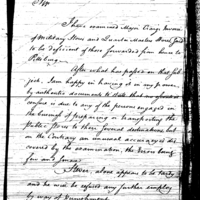 Sir
I have examined Major Craigs Invoice
of Military Stores and Quarter Master Stores, said
to be deficient of those forwarded from hence to
Pittsburg.
After what has passed on that sub-
ject, I am happy in having it in my power,
by authentic documents to state that
is due to any of the persons engaged in
the business of preparing or transporting the
public Stores to their several destinations, but
on the Contrary an unusual accuracy is dis-
covered by the examination, the Errors being
few and small.
Steer, alone appears to be tardy
and he will be refused any further employ
by way of Punishment.